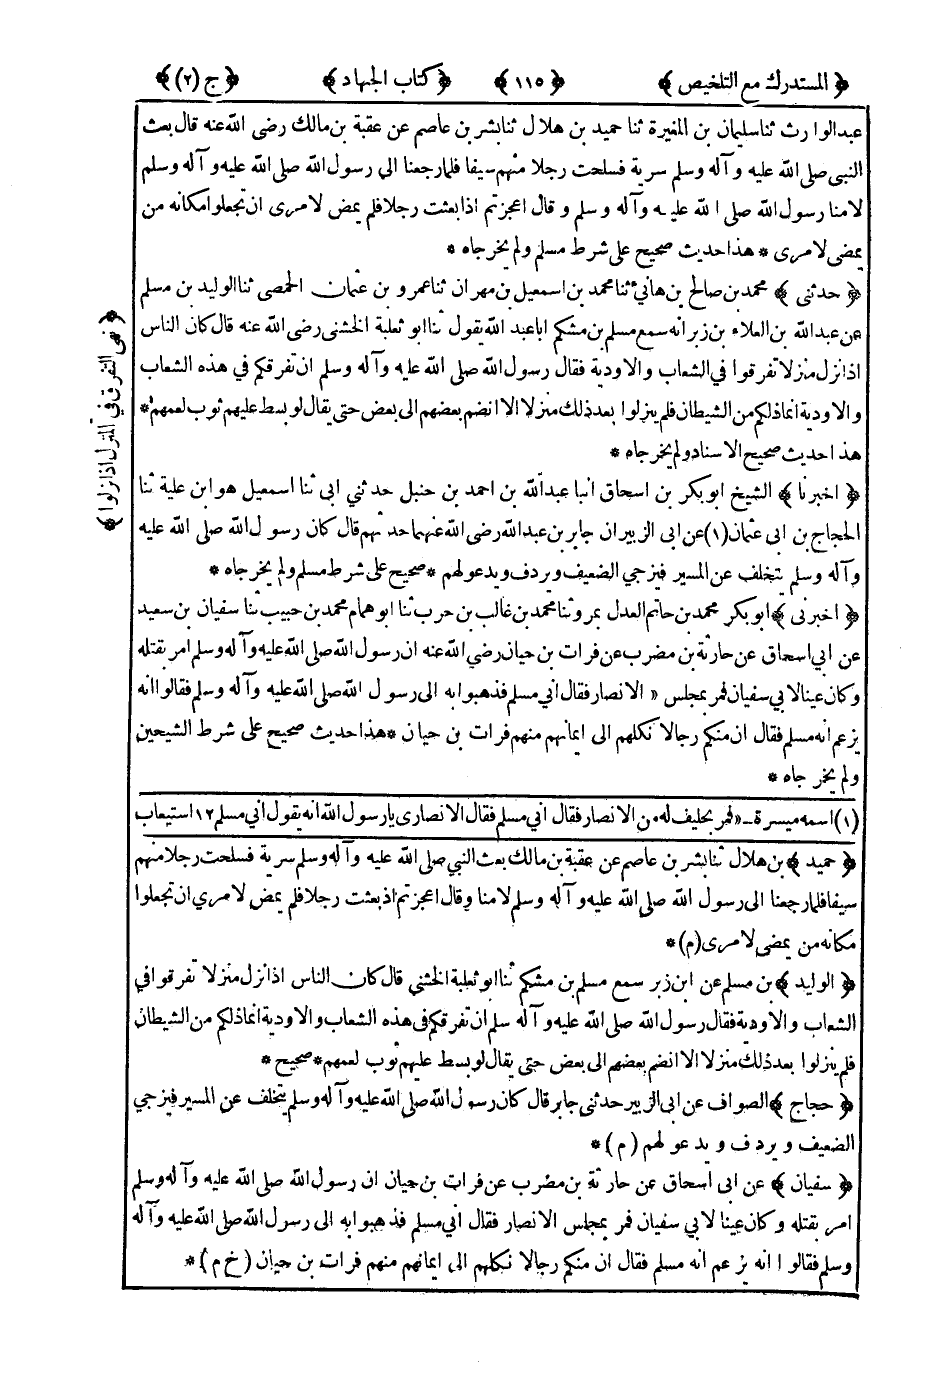 ﴿ المستدرك مع التلخيص ﴾ ﴿ ١١٥ ﴾ ﴿ كتاب الجهاد ﴾ ﴿ ج (٢) ﴾
عبدالوارث ثنا سليمان بن المغيرة ثنا حميد بن هلال ثنا بشر بن عاصم عن عقبة بن مالك رضى الله عنه قال بعث
النبى صلى الله عليه وآله وسلم سرية فسلحت رجلا منهم سيفا فلما رجعنا الى رسول الله صلى الله عليه وآله وسلم
لامنا رسول الله صلى الله عليه وآله وسلم وقال اعجزتم اذا بعثت رجلا فلم يمض لامرى ان تجعلوا مكانه من
يمضى لامرى * هذا حديث صحيح على شرط مسلم ولم يخرجاه *
﴿ حدثنى ﴾ محمد بن صالح بن هانئ ثنا محمد بن اسمعيل بن مهران ثنا عمرو بن عثمان الحمصى ثنا الوليد بن مسلم
عن عبدالله بن العلاء بن زبر انه سمع مسلم بن مشكم ابا عبد الله يقول ثنا ابو ثعلبة الخشنى رضى الله عنه قال كان الناس
اذا نزل منزلا تفرقوا في الشعاب والاودية فقال رسول الله صلى الله عليه وآله وسلم ان تفرقكم في هذه الشعاب
والاودية انما ذلكم من الشيطان فلم ينزلوا بعد ذلك منزلا الا انضم بعضهم الى بعض حتى يقال لو بسط عليهم ثوب لعمهم *
هذا حديث صحيح الاسناد ولم يخرجاه *
﴿ اخبرنا ﴾ الشيخ ابو بكر بن اسحاق انبا عبدالله بن احمد بن حنبل حدثني ابى ثنا اسمعيل هو ابن علية ثنا
الحجاج بن ابى عثمان (١) عن ابى الزبير ان جابر بن عبدالله رضى الله عنهما حدثهم قال كان رسول الله صلى الله عليه
وآله وسلم يتخلف عن المسير فيزجي الضعيف ويردف ويدعو لهم * صحيح على شرط مسلم ولم يخرجاه *
﴿ اخبرنى ﴾ ابو بكر محمد بن حاتم العدل بمرو ثنا محمد بن غالب بن حرب ثنا ابو همام محمد بن حبيب ثنا سفيان بن سعيد
عن ابي اسحاق عن حارثة بن مضرب عن فرات بن حيان رضي الله عنه ان رسول الله صلى الله عليه وآله وسلم امر بقتله
وكان عينا لابى سفيان فمر بمجلس « الانصار فقال انى مسلم فذهبوا به الى رسول الله صلى الله عليه وآله وسلم فقالوا انه
يزعم انه مسلم فقال ان منكم رجالا نكلهم الى ايمانهم منهم فرات بن حيان * هذا حديث صحيح على شرط الشيخين
ولم يخرجاه *
﴿ نهى التفرق في المنزل اذا نزلوا ﴾
(١) اسمه ميسرة - « فمر بحليف له من الانصار فقال انى مسلم فقال الانصارى يا رسول الله انه يقول انى مسلم ١٢ استيعاب
﴿ حميد ﴾ بن هلال ثنا بشر بن عاصم عن عقبة بن مالك بعث النبي صلى الله عليه وآله وسلم سرية فسلحت رجلا منهم
سيفا فلما رجعنا الى رسول الله صلى الله عليه وآله وسلم لامنا وقال اعجزتم اذ بعثت رجلا فلم يمض لامري ان تجعلوا
مكانه من يمضى لامرى (م) *
﴿ الوليد ﴾ بن مسلم عن ابن زبر سمع مسلم بن مشكم ثنا ابو ثعلبة الخشني قال كان الناس اذا نزل منزلا تفرقوا في
الشعاب والاودية فقال رسول الله صلى الله عليه وآله سلم ان تفرقكم فى هذه الشعاب والاودية انما ذلكم من الشيطان
فلم ينزلوا بعد ذلك منزلا الا انضم بعضهم الى بعض حتى يقال لو بسط عليهم ثوب لعمهم * صحيح *
﴿ حجاج ﴾ الصواف عن ابى الزبير حدثنى جابر قال كان رسول الله صلى الله عليه وآله وسلم يتخلف عن المسير فيزجي
الضعيف ويردف ويدعو لهم (م) *
﴿ سفيان ﴾ عن ابى اسحاق عن حارثة بن مضرب عن فرات بن حيان ان رسول الله صلى الله عليه وآله وسلم
امر بقتله وكان عينا لابي سفيان فمر بمجلس الانصار فقال انى مسلم فذهبوا به الى رسول الله صلى الله عليه وآله
وسلم فقالوا انه يزعم انه مسلم فقال ان منكم رجالا نكلهم الى ايمانهم منهم فرات بن حيان (خ م) *